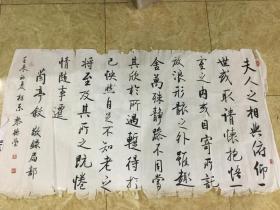 夫人之相與俯仰一
世或取諸懷抱一
室之內或因寄所託
放浪形骸之外雖趣
舍萬殊靜躁不同當
其欣於所遇暫得於
己快然自足不知老之
將至及其所之既惓
情隨事遷
蘭亭敘敬錄局部
壬辰初夏桂東